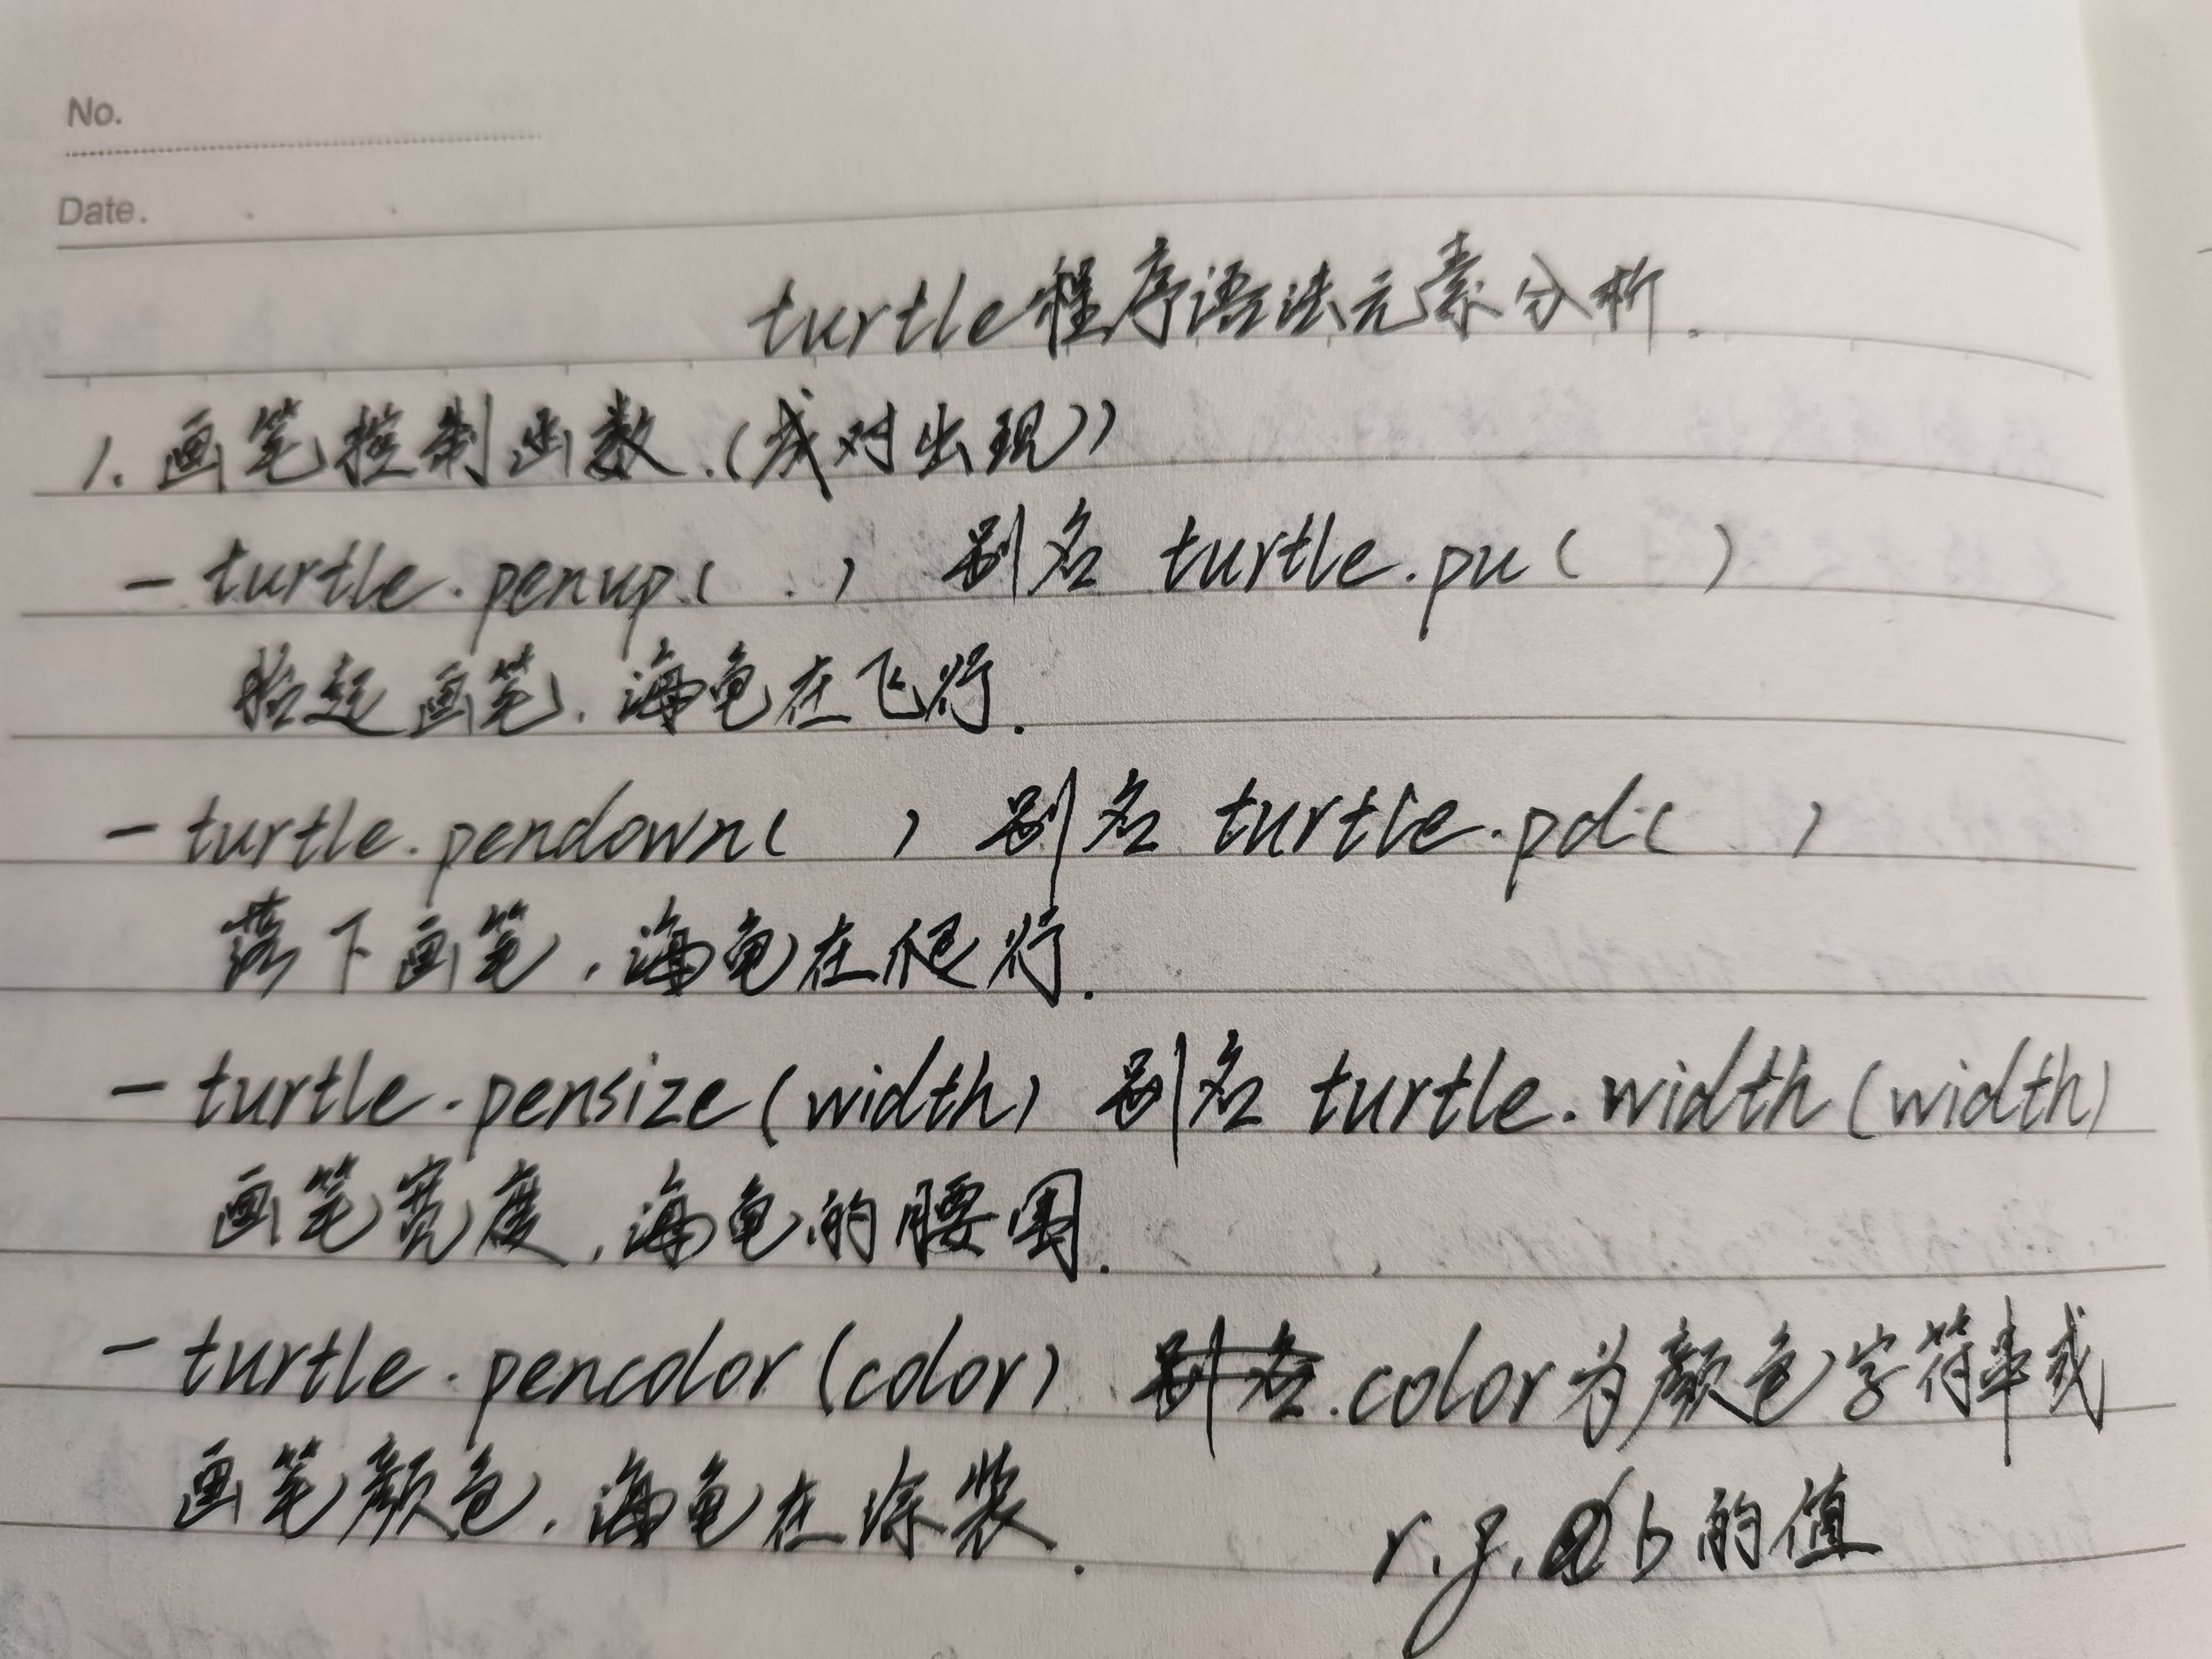 No.
Date.
turtle程序语法元素分析.
1.画笔控制函数.(成对出现))
-turtle.penup( .) 别名 turtle.pu( )
抬起画笔.海龟在飞行.
-turtle.pendown( ) 别名 turtle.pd( )
落下画笔,海龟在爬行.
-turtle.pensize(width) 别名 turtle.width(width)
画笔宽度,海龟的腰围.
-turtle.pencolor(color) 别名.color为颜色字符串或
画笔颜色,海龟在涂装. r.g.b的值